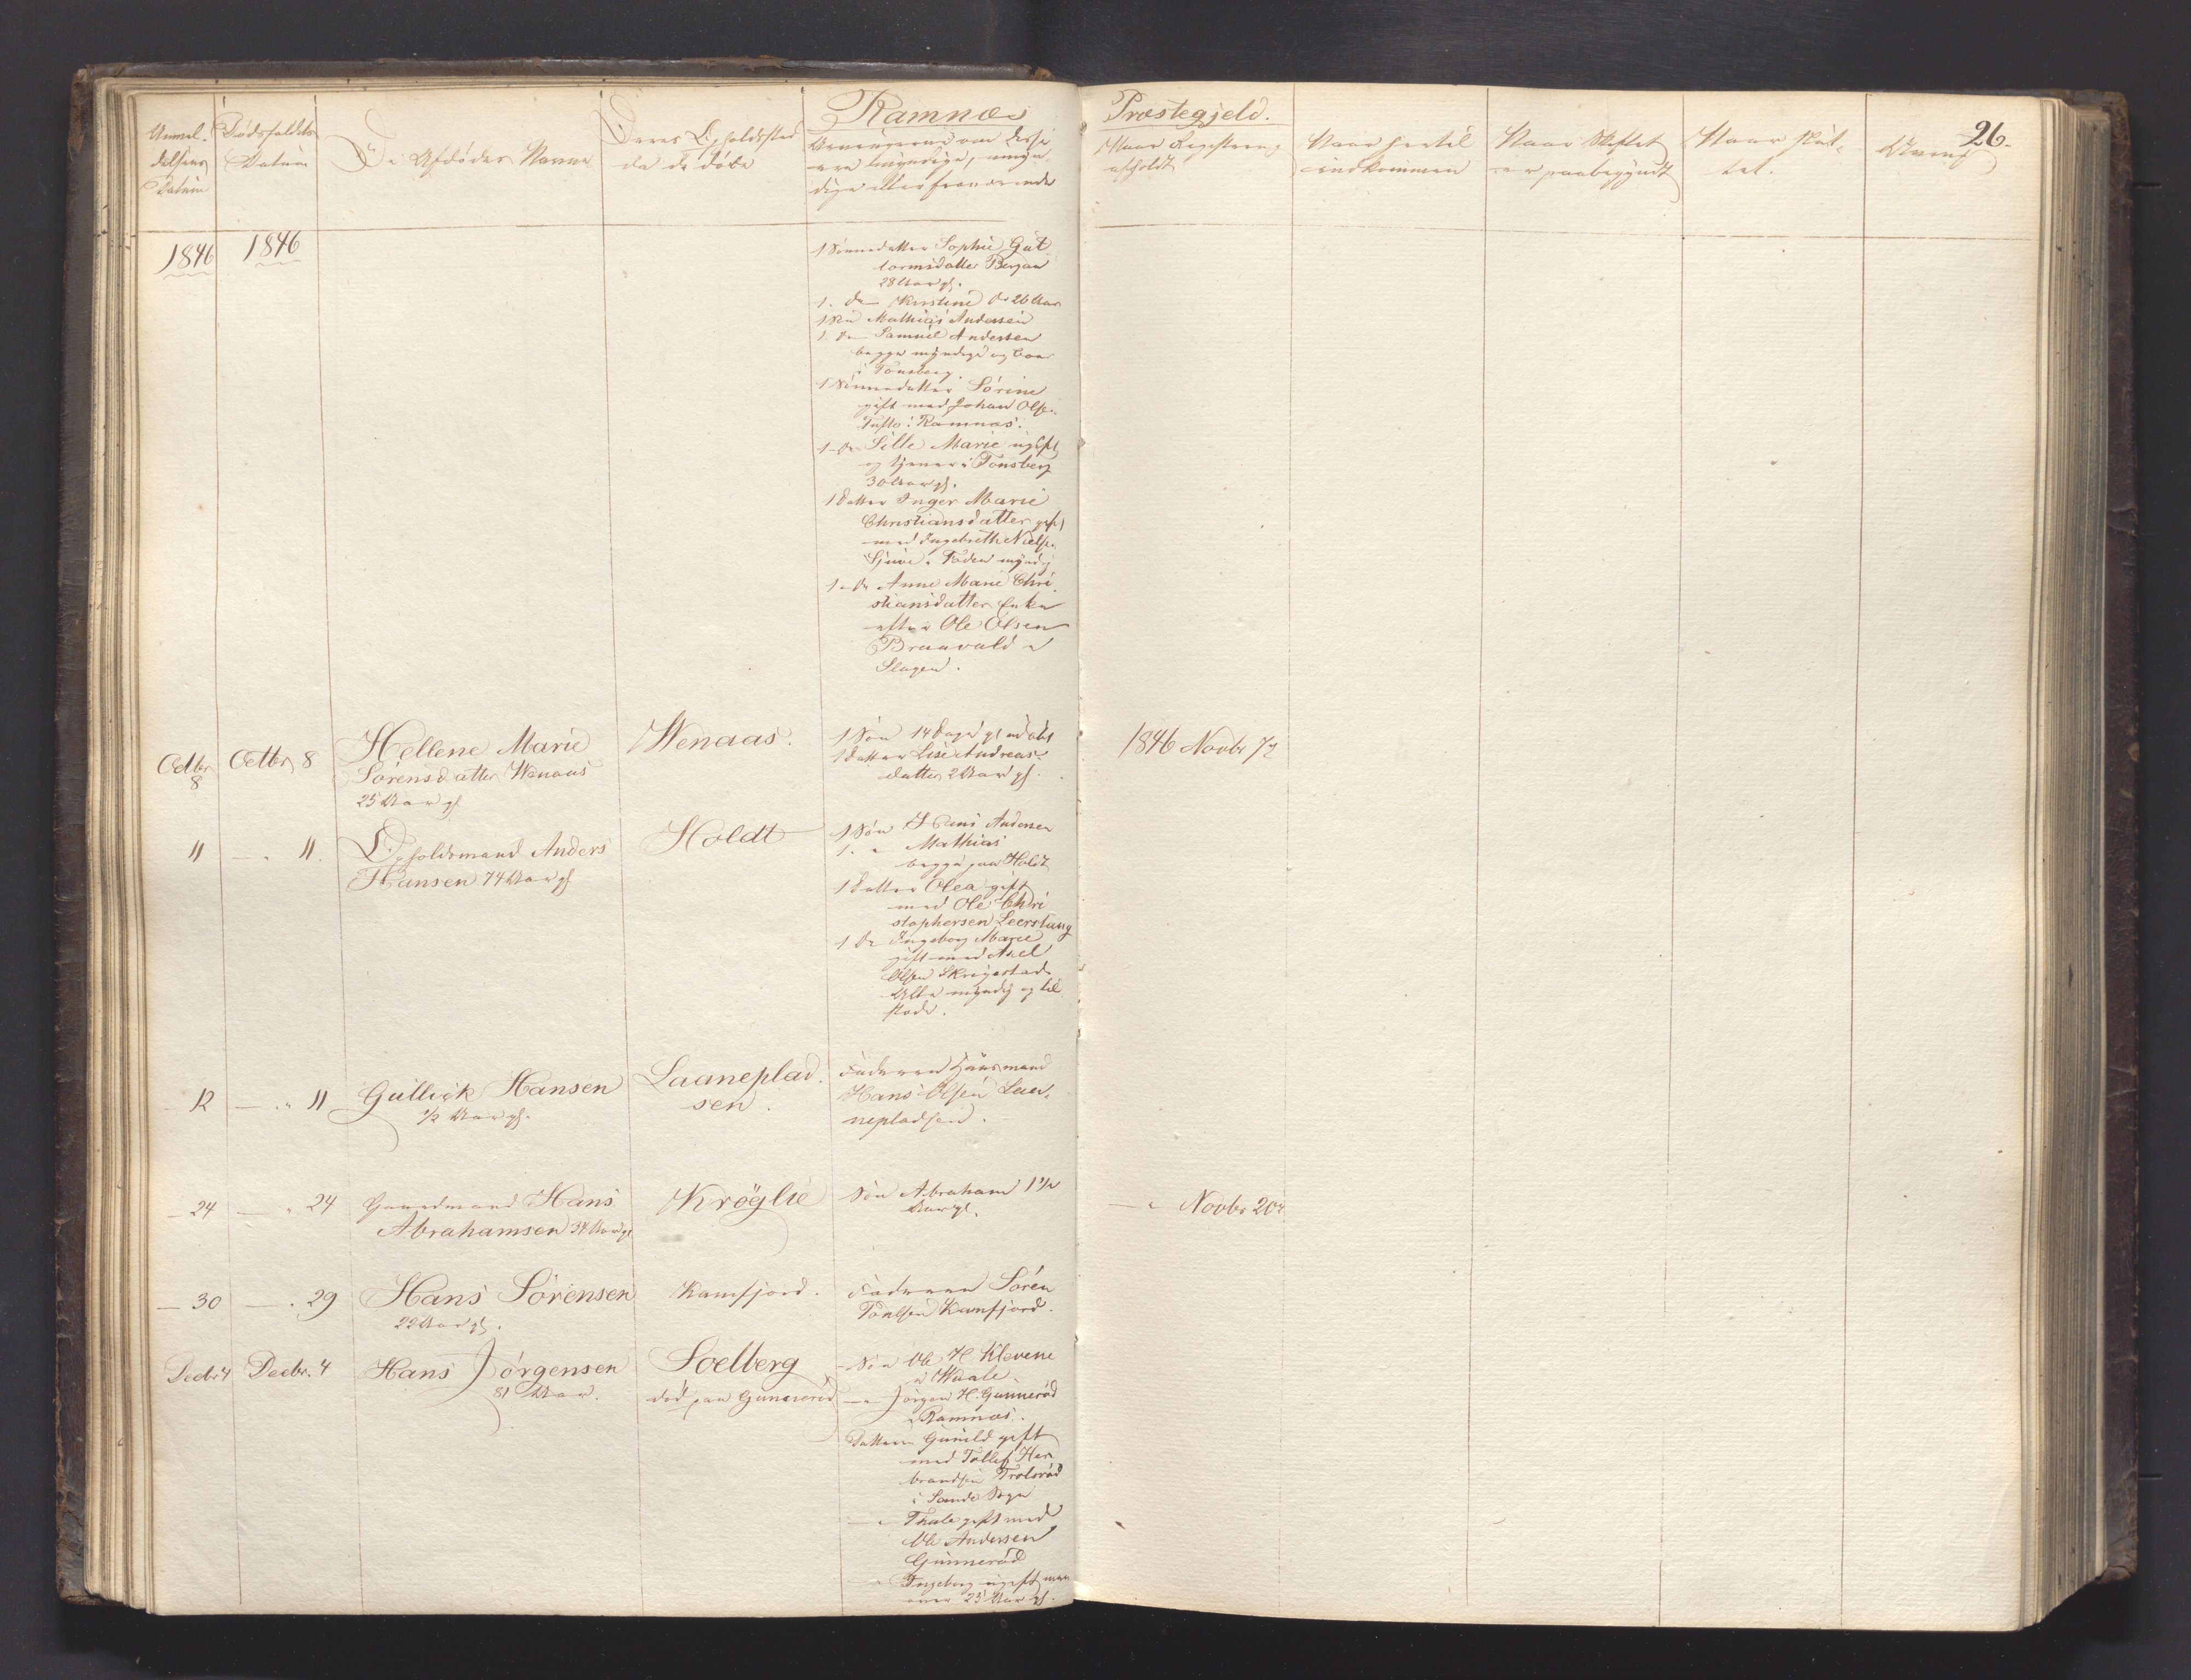 Ramnæs
Præstegjeld.
26.
Anmel-
delsens
Datum
Dødsfaldets
Datum
De Afdødes Navne
Deres Opholdssted
da de døde
Arvingerne om disse
ere myndige, umyn-
dige eller fraværende
Naar Registrering
afholdt
Naar hertil
indkommen
Naar Skiftet
er paabegyndt
Naar slut-
tet.
1846
1846
1 Sønnedatter Sophie Gut
tormsdatter Bergan
28 Aar gl.
1. do Kirstine do 26 Aar
1 Søn Mathias Andersen
1. do Samuel Andersen
begge myndige og boer
i Tønsberg.
1 Sønnedatter Sørine
gift med Johan Olsen
Tufte i Ramnæs.
1 do Sille Marie ugift
og tjener i Tønsberg
30 Aar gl.
1 Datter Inger Marie
Christiansdatter gift
med Ingebreth Nielsen
myndig
1 do Anne Marie Chri
stiansdatter Enke
efter Ole Olsen
Bruavald i
Slagen.
Octbr
8
Octbr 8
Hellene Marie
Sørensdatter Wenaas
25 Aar gl
Wenaas.
1 Søn 14 Dage gl udøbt
1 Datter Lise Andreas-
datter 2 Aar gl.
1846 Novbr 7de
11
— " 11.
Opholdsmand Anders
Hansen 74 Aar gl
Holdt
1 Søn Hans Andersen
1. " Mathias
begge paa Holdt
1 Datter Olea gift
med Ole Chri
stophersen Leerstang
1 do Ingeborg Marie
gift med Axel
Olsen Skrigestad
Alle myndig og til
stede.
— 12
— " 11
Gullick Hansen
1/2 Aar gl.
Laaneplad
sen.
Faderen Huusmand
Hans Olsen Laa-
nepladsen.
— 24
— " 24
Gaardmand Hans
Abrahamsen 34 Aar gl
Krøglie
Søn Abraham 1 1/2
Aar gl.
— " Novbr 20de
— 30
— " 29
Hans Sørensen
22 Aar gl.
Kamfjord.
Faderen Søren
Kamfjord.
Decbr 4
Decbr. 4
Hans Jørgensen
81 Aar.
Soelberg
død paa Gunnerød
— Søn Ole H. Klevene
i Waale.
— " Jørgen H. Gunnerød
i Ramnæs.
Datteren Gunild gift
med Tollef Her
brandsen Trolsrød
i Sande Sogn
— " Thale gift med
Ole Andersen
Gunnerød
— " Ingeborg ugift men
over 25 Aar gl.